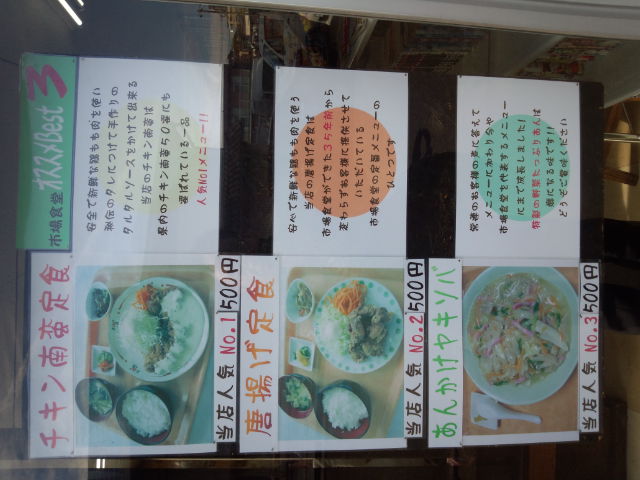 市場食堂 オススメBest3
チキン南蛮定食
当店人気 No.1 500円
安全で新鮮な鶏もも肉を使い
秘伝のタレにつけて手作りの
タルタルソースをかけて出来る
当店のチキン南蛮は
県内のチキン南蛮50選にも
選ばれている一品
人気No1メニュー!!
唐揚げ定食
当店人気 No.2 500円
安心で新鮮な鶏もも肉を使う
当店の唐揚げ定食は
市場食堂ができた35年前から
変わらずお客様に提供させて
いただいている
市場食堂の定番メニューの
ひとつです
あんかけヤキソバ
当店人気 No.3 500円
常連のお客様の声に答えて
メニューに加わり今や
市場食堂を代表するメニュー
にまで成長しました!
特製の野菜たっぷりあんは
癖になる味です!!
どうぞご賞味ください